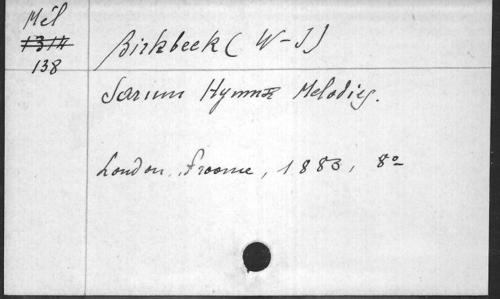 Mél
1314
138
Birkbeck (W-J)
Sarum Hymn Melodies.
London, Froome, 1883, 8°